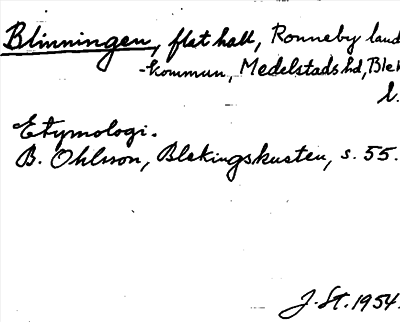 Blinningen, flat hall, Ronneby land
-kommun, Medelstads hd, Blek
l.
Etymologi.
B. Ohlsson, Blekingskusten, s. 55.
J. St. 1954.